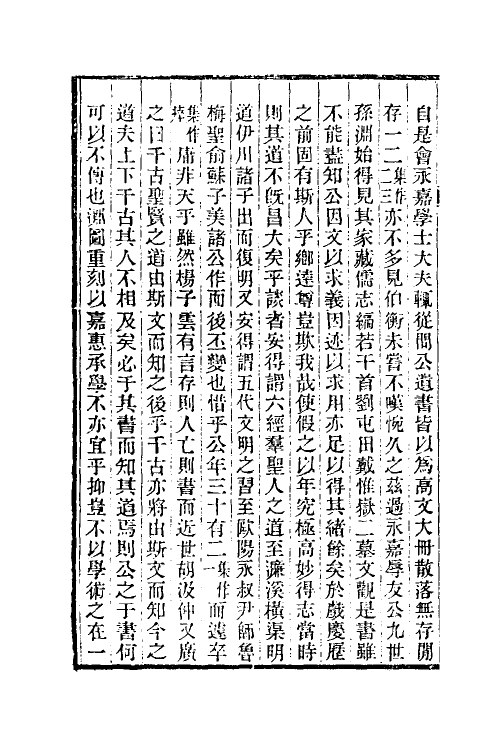 自是會永嘉學士大夫輒從問公遺書皆以為高文大冊散落無存閒
存一二集作二三亦不多見伯衡未嘗不嘆惋久之茲過永嘉辱友公九世
孫淵始得見其家藏儒志編若干首劉屯田戴惟嶽二墓文觀是書雖
不能盡知公因文以求義因迹以求用亦足以得其緒餘矣於戲慶歷
之前固有斯人乎鄉逹尊豈欺我哉使假之以年究極高妙得志當時
則其道不旣昌大矣乎談者安得謂六經羣聖人之道至濂溪橫渠明
道伊川諸子出而復明又安得謂五代文明之習至歐陽永叔尹師魯
梅聖俞蘇子美諸公作而後丕變也惜乎公年三十有二集作一而遽卒
集作庸非天乎雖然楊子雲有言存則人亡則書而近世胡汲仲又廣
之曰千古聖賢之道由斯文而知之後乎千古亦將由斯文而知今之
道夫上下千古其人不相及矣必于其書而知其道焉則公之于書何
可以不傳也淵圖重刻以嘉惠承學不亦宜乎抑豈不以學術之在一